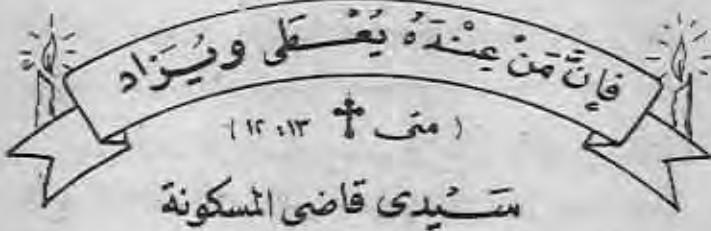 فَإِنَّ مَنْ عِنْدَهُ يُعْطَى وَيُزَاد
( متى ✝ ١٣ : ١٢ )
سَيدى قاضى المسكونة